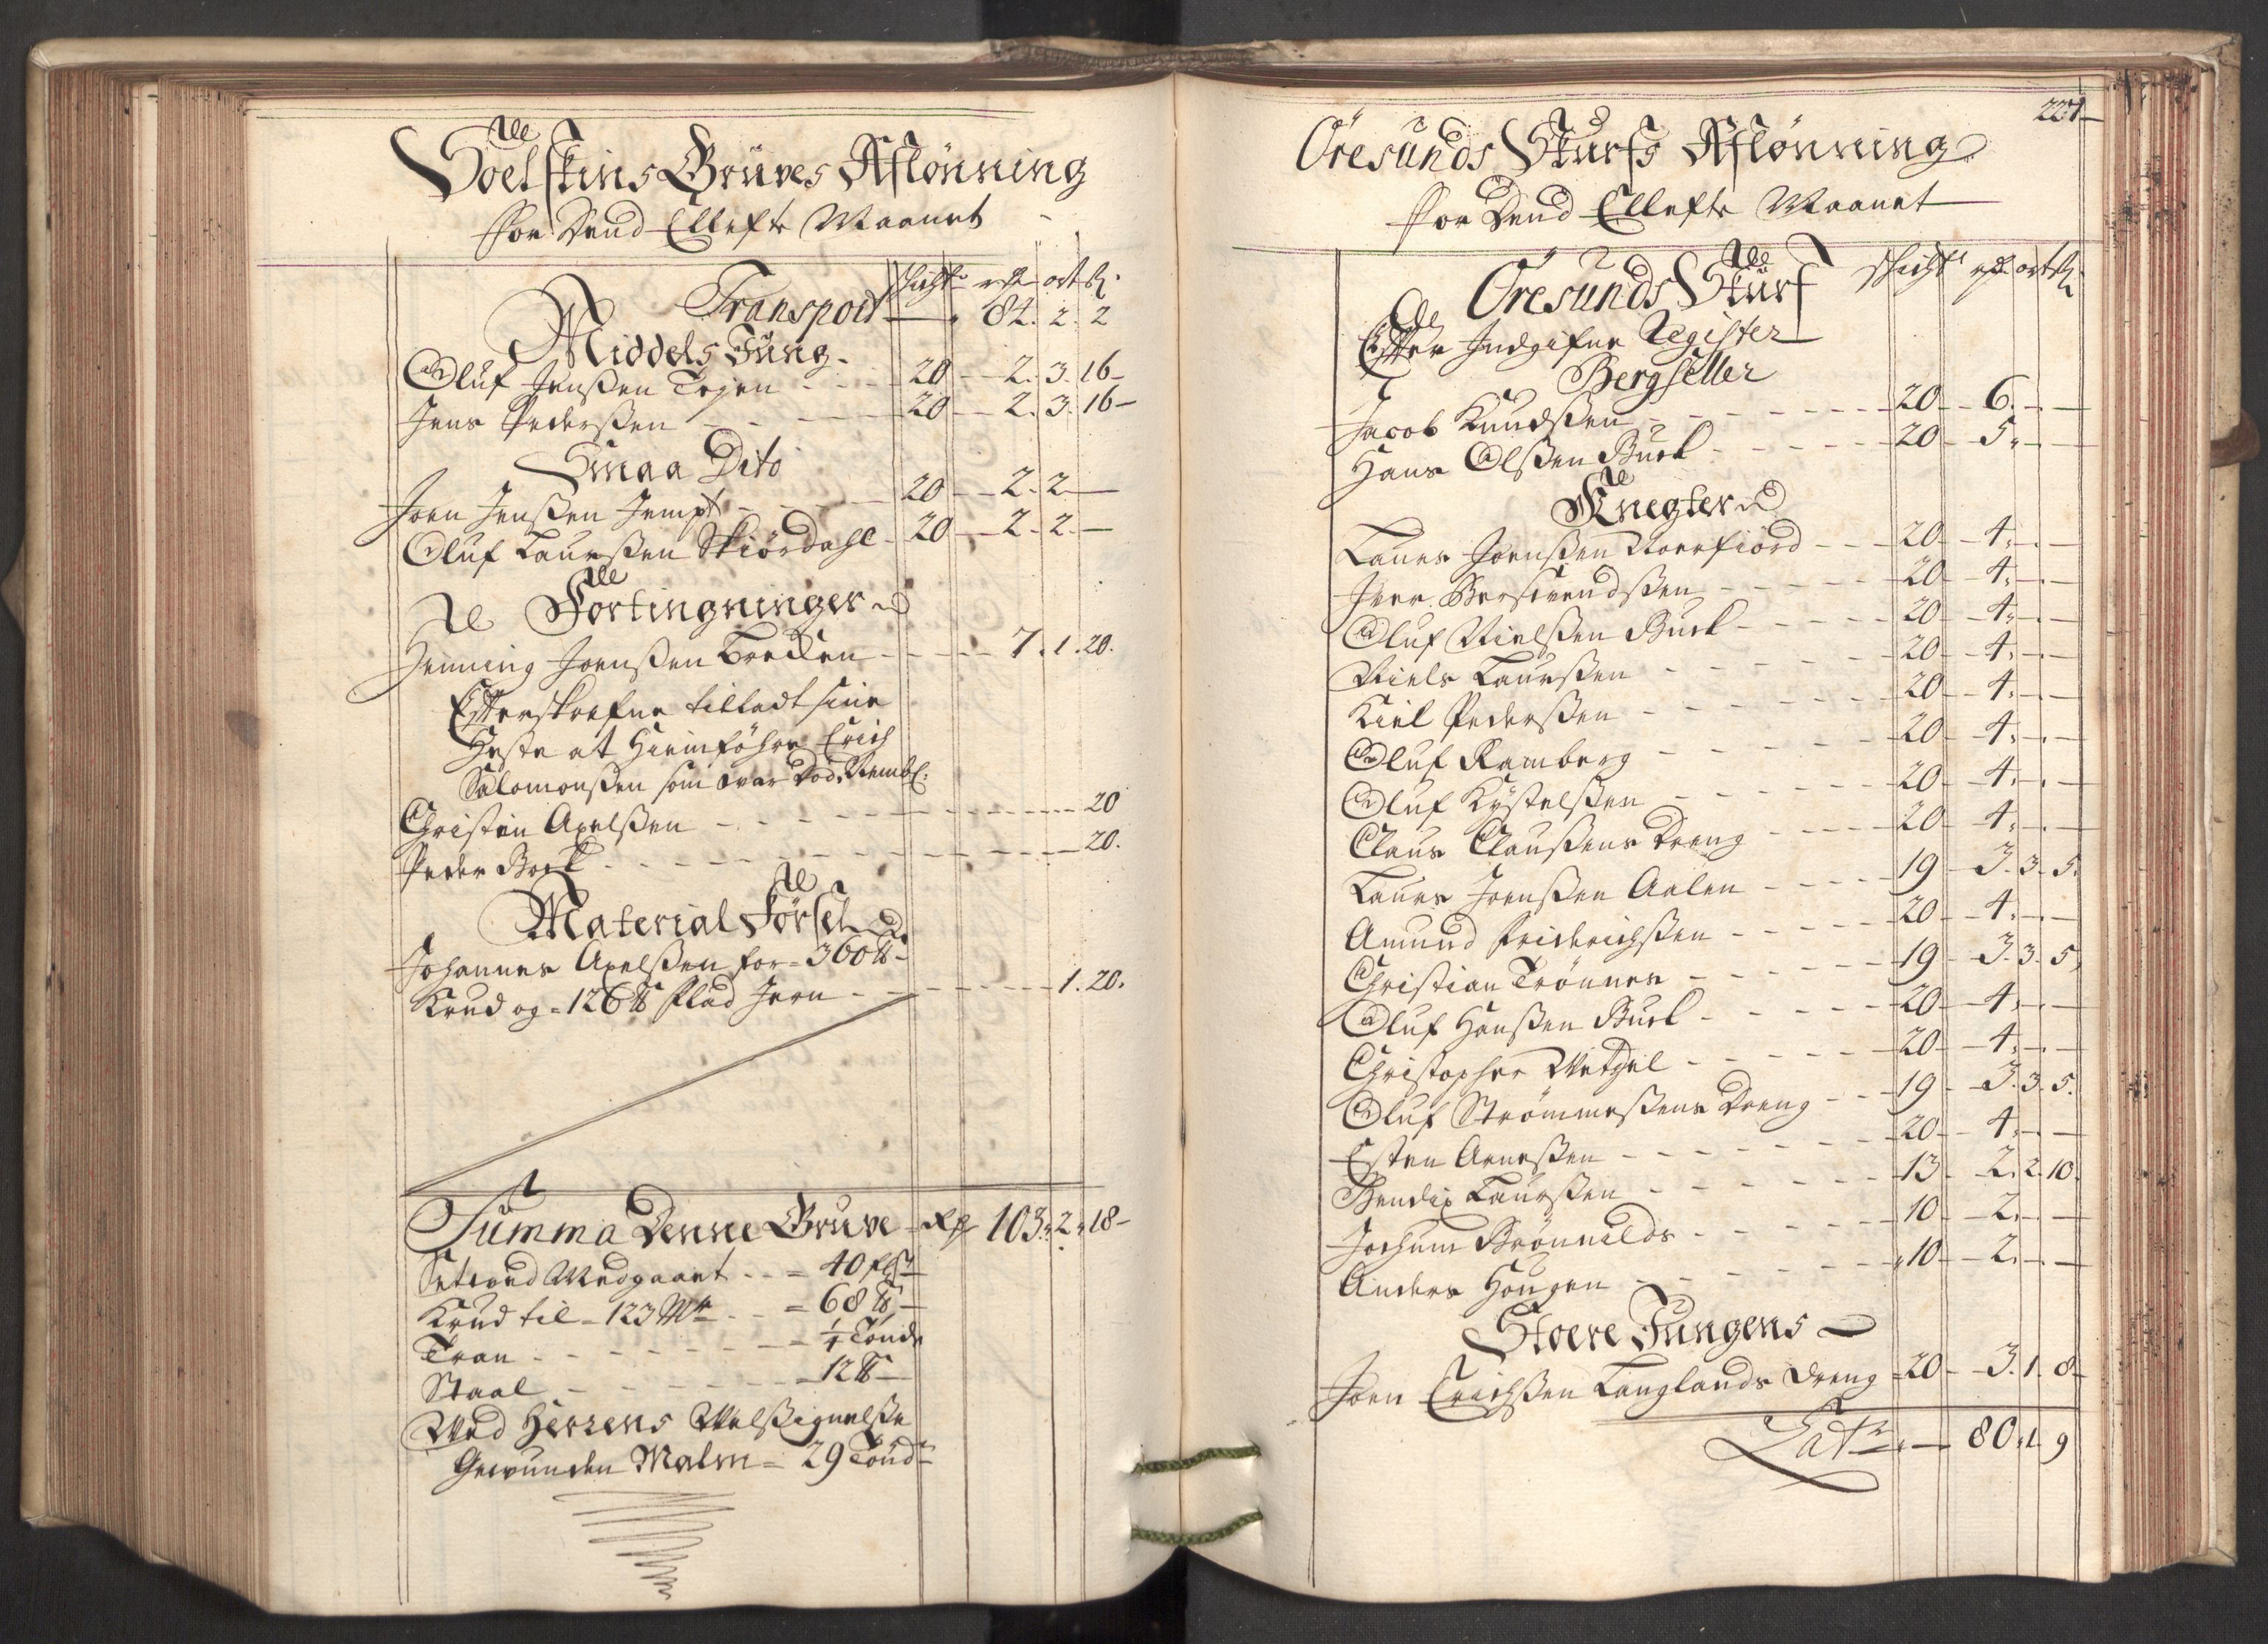 Soelskins Gruves Aflønning
for Dend Ellefte Maanet
schicht rdr ort ß
Transport - 84. 2. 2
Middels Jung.
Oluf Jenßen Togen - 20 - 2. 3. 16
Jens Pederßen - 20 - 2. 3. 16
Smaa Dito
Joen Jenßen Jempt - 20 - 2. 2. -
Oluf Laurßen Skiördahl - 20 - 2. 2. -
Fortingninger
Henning Joenßen Brecken - 7. 1. 20.
Efterskrefne tilladt sine
Heste at Hiemföhre Erich
Salomonßen som var död
Christen Axelßen - 20
Peder Bock - 20.
Material Förßel
Johannes Axelßen for = 360 ℔
Krud og = 126 ℔ Plad Jern - 1. 20.
Summa Denne Gruve - Rdr 103. 2. 18
Setved Medgaaet = 40
Krud til = 123 = 68 ℔
Tran = 1/4 Tönde
Staal = 12 ℔
Med Herrens Velßignelße
Gevunden Malm = 29 Tönd
221
Öresunds Skurfs Aflönning
for Dend Ellefte Maanet
Öresunds Skurf schicht rdr ort ß
Efter Indgifne Register
Bergseller
Jacob Knudßen - 20 - 6. - -
Hans Olßen Buck - 20 - 5. - -
Knegter
Laurs Joenßen Norfiord - 20 - 4. - -
Iver Bersvendßen - 20 - 4. - -
Oluf Nielßen Buck - 20 - 4. - -
Niels Laurßen - 20 - 4. - -
Kiel Pederßen - 20 - 4. - -
Oluf Ramberg - 20 - 4. - -
Oluf Kystelßen - 20 - 4. - -
Claus Claußens Dreng - 20 - 4. - -
Laurs Joenßen Aalen - 19 - 3. 3. 5.
Amund Friderichßen - 20 - 4. - -
Christian Trönnes - 19 - 3. 3. 5
Oluf Hanßen Buck - 20 - 4. - -
Christopher Wetzel - 20 - 4. - -
Oluf Strömmeßens Dreng - 19 - 3. 3. 5.
Esten Arneßen - 20 - 4. - -
Bendix Laurßen - 13 - 2. 2. 10
Jochum Brönnilds - 10 - 2. - -
Anders Hougen - 10 - 2. - -
Stoere Jungens
Joen Erichßen Langlands Dreng - 20 - 3. 1. 8
Lat - 80. 1. 9